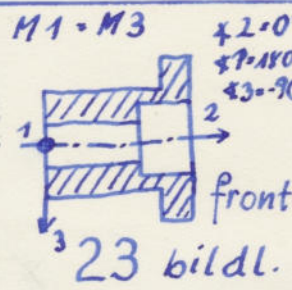 M1 = M3
∡2=0
∡1=180
∡3=-90
1
2
3
front
23 bildl.